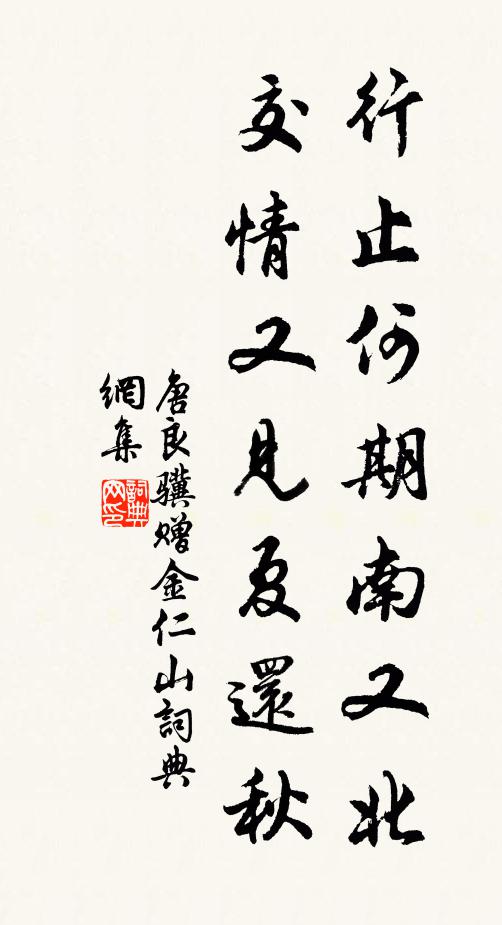 行止何期南又北
交情又見夏還秋
唐良驥贈金仁山詞典
網集
詞典
网印